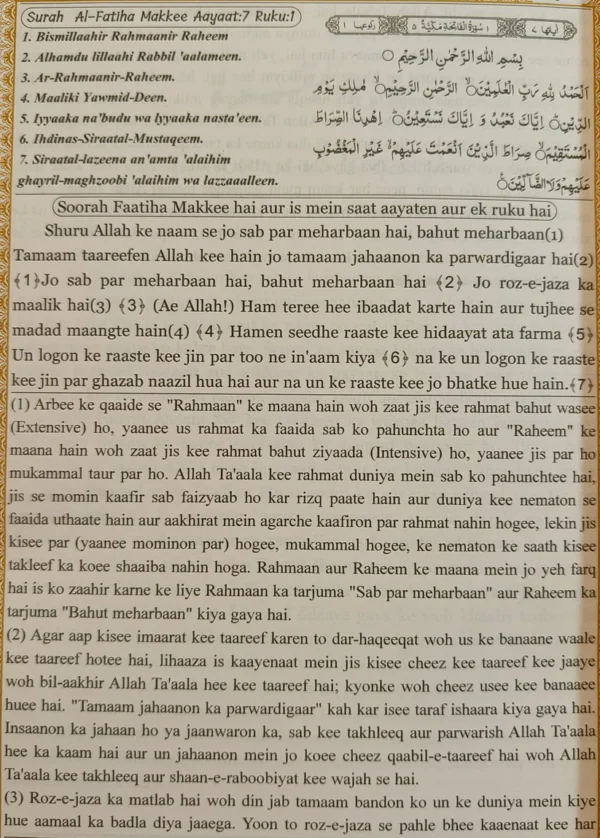 Surah Al-Fatiha Makkee Aayaat:7 Ruku:1
1. Bismillaahir Rahmaanir Raheem
2. Alhamdu lillaahi Rabbil 'aalameen.
3. Ar-Rahmaanir-Raheem.
4. Maaliki Yawmid-Deen.
5. Iyyaaka na'budu wa Iyyaaka nasta'een.
6. Ihdinas-Siraatal-Mustaqeem.
7. Siraatal-lazeena an'amta 'alaihim
ghayril-maghzoobi 'alaihim wa lazzaaalleen.
اٰیٰتها ٧ ١ سُوْرَةُ الْفَاتِحَةِ مَكِّيَّةٌ ٥ رکوعها ١
بِسْمِ اللّٰهِ الرَّحْمٰنِ الرَّحِيْمِ
اَلْحَمْدُ لِلّٰهِ رَبِّ الْعٰلَمِيْنَ الرَّحْمٰنِ الرَّحِيْمِ مٰلِكِ يَوْمِ
الدِّيْنِ اِيَّاكَ نَعْبُدُ وَ اِيَّاكَ نَسْتَعِيْنُ اِهْدِنَا الصِّرَاطَ
الْمُسْتَقِيْمَ صِرَاطَ الَّذِيْنَ اَنْعَمْتَ عَلَيْهِمْ غَيْرِ الْمَغْضُوْبِ
عَلَيْهِمْ وَلَا الضَّآلِّيْنَ
Soorah Faatiha Makkee hai aur is mein saat aayaten aur ek ruku hai
Shuru Allah ke naam se jo sab par meharbaan hai, bahut meharbaan(1)
Tamaam taareefen Allah kee hain jo tamaam jahaanon ka parwardigaar hai(2)
﴾1﴿Jo sab par meharbaan hai, bahut meharbaan hai ﴾2﴿ Jo roz-e-jaza ka
maalik hai(3) ﴾3﴿ (Ae Allah!) Ham teree hee ibaadat karte hain aur tujhee se
madad maangte hain(4) ﴾4﴿ Hamen seedhe raaste kee hidaayat ata farma ﴾5﴿
Un logon ke raaste kee jin par too ne in'aam kiya ﴾6﴿ na ke un logon ke raaste
kee jin par ghazab naazil hua hai aur na un ke raaste kee jo bhatke hue hain.﴾7﴿
(1) Arbee ke qaaide se "Rahmaan" ke maana hain woh zaat jis kee rahmat bahut wasee
(Extensive) ho, yaanee us rahmat ka faaida sab ko pahunchta ho aur "Raheem" ke
maana hain woh zaat jis kee rahmat bahut ziyaada (Intensive) ho, yaanee jis par ho
mukammal taur par ho. Allah Ta'aala kee rahmat duniya mein sab ko pahunchtee hai,
jis se momin kaafir sab faizyaab ho kar rizq paate hain aur duniya kee nematon se
faaida uthaate hain aur aakhirat mein agarche kaafiron par rahmat nahin hogee, lekin jis
kisee par (yaanee mominon par) hogee, mukammal hogee, ke nematon ke saath kisee
takleef ka koee shaaiba nahin hoga. Rahmaan aur Raheem ke maana mein jo yeh farq
hai is ko zaahir karne ke liye Rahmaan ka tarjuma "Sab par meharbaan" aur Raheem ka
tarjuma "Bahut meharbaan" kiya gaya hai.
(2) Agar aap kisee imaarat kee taareef karen to dar-haqeeqat woh us ke banaane waale
kee taareef hotee hai, lihaaza is kaayenaat mein jis kisee cheez kee taareef kee jaaye
woh bil-aakhir Allah Ta'aala hee kee taareef hai; kyonke woh cheez usee kee banaaee
huee hai. "Tamaam jahaanon ka parwardigaar" kah kar isee taraf ishaara kiya gaya hai.
Insaanon ka jahaan ho ya jaanwaron ka, sab kee takhleeq aur parwarish Allah Ta'aala
hee ka kaam hai aur un jahaanon mein jo koee cheez qaabil-e-taareef hai woh Allah
Ta'aala kee takhleeq aur shaan-e-raboobiyat kee wajah se hai.
(3) Roz-e-jaza ka matlab hai woh din jab tamaam bandon ko un ke duniya mein kiye
hue aamaal ka badla diya jaaega. Yoon to roz-e-jaza se pahle bhee kaaenaat kee har